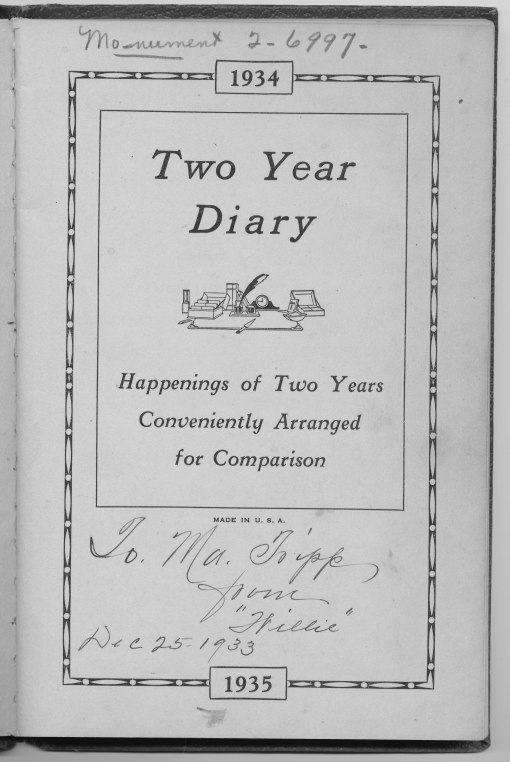 Monument 2-6997-
1934
Two Year
Diary
Happenings of Two Years
Conveniently Arranged
for Comparison
MADE IN U. S. A.
To. Ma. Tripp
from
"Willie"
Dec 25-1933
1935